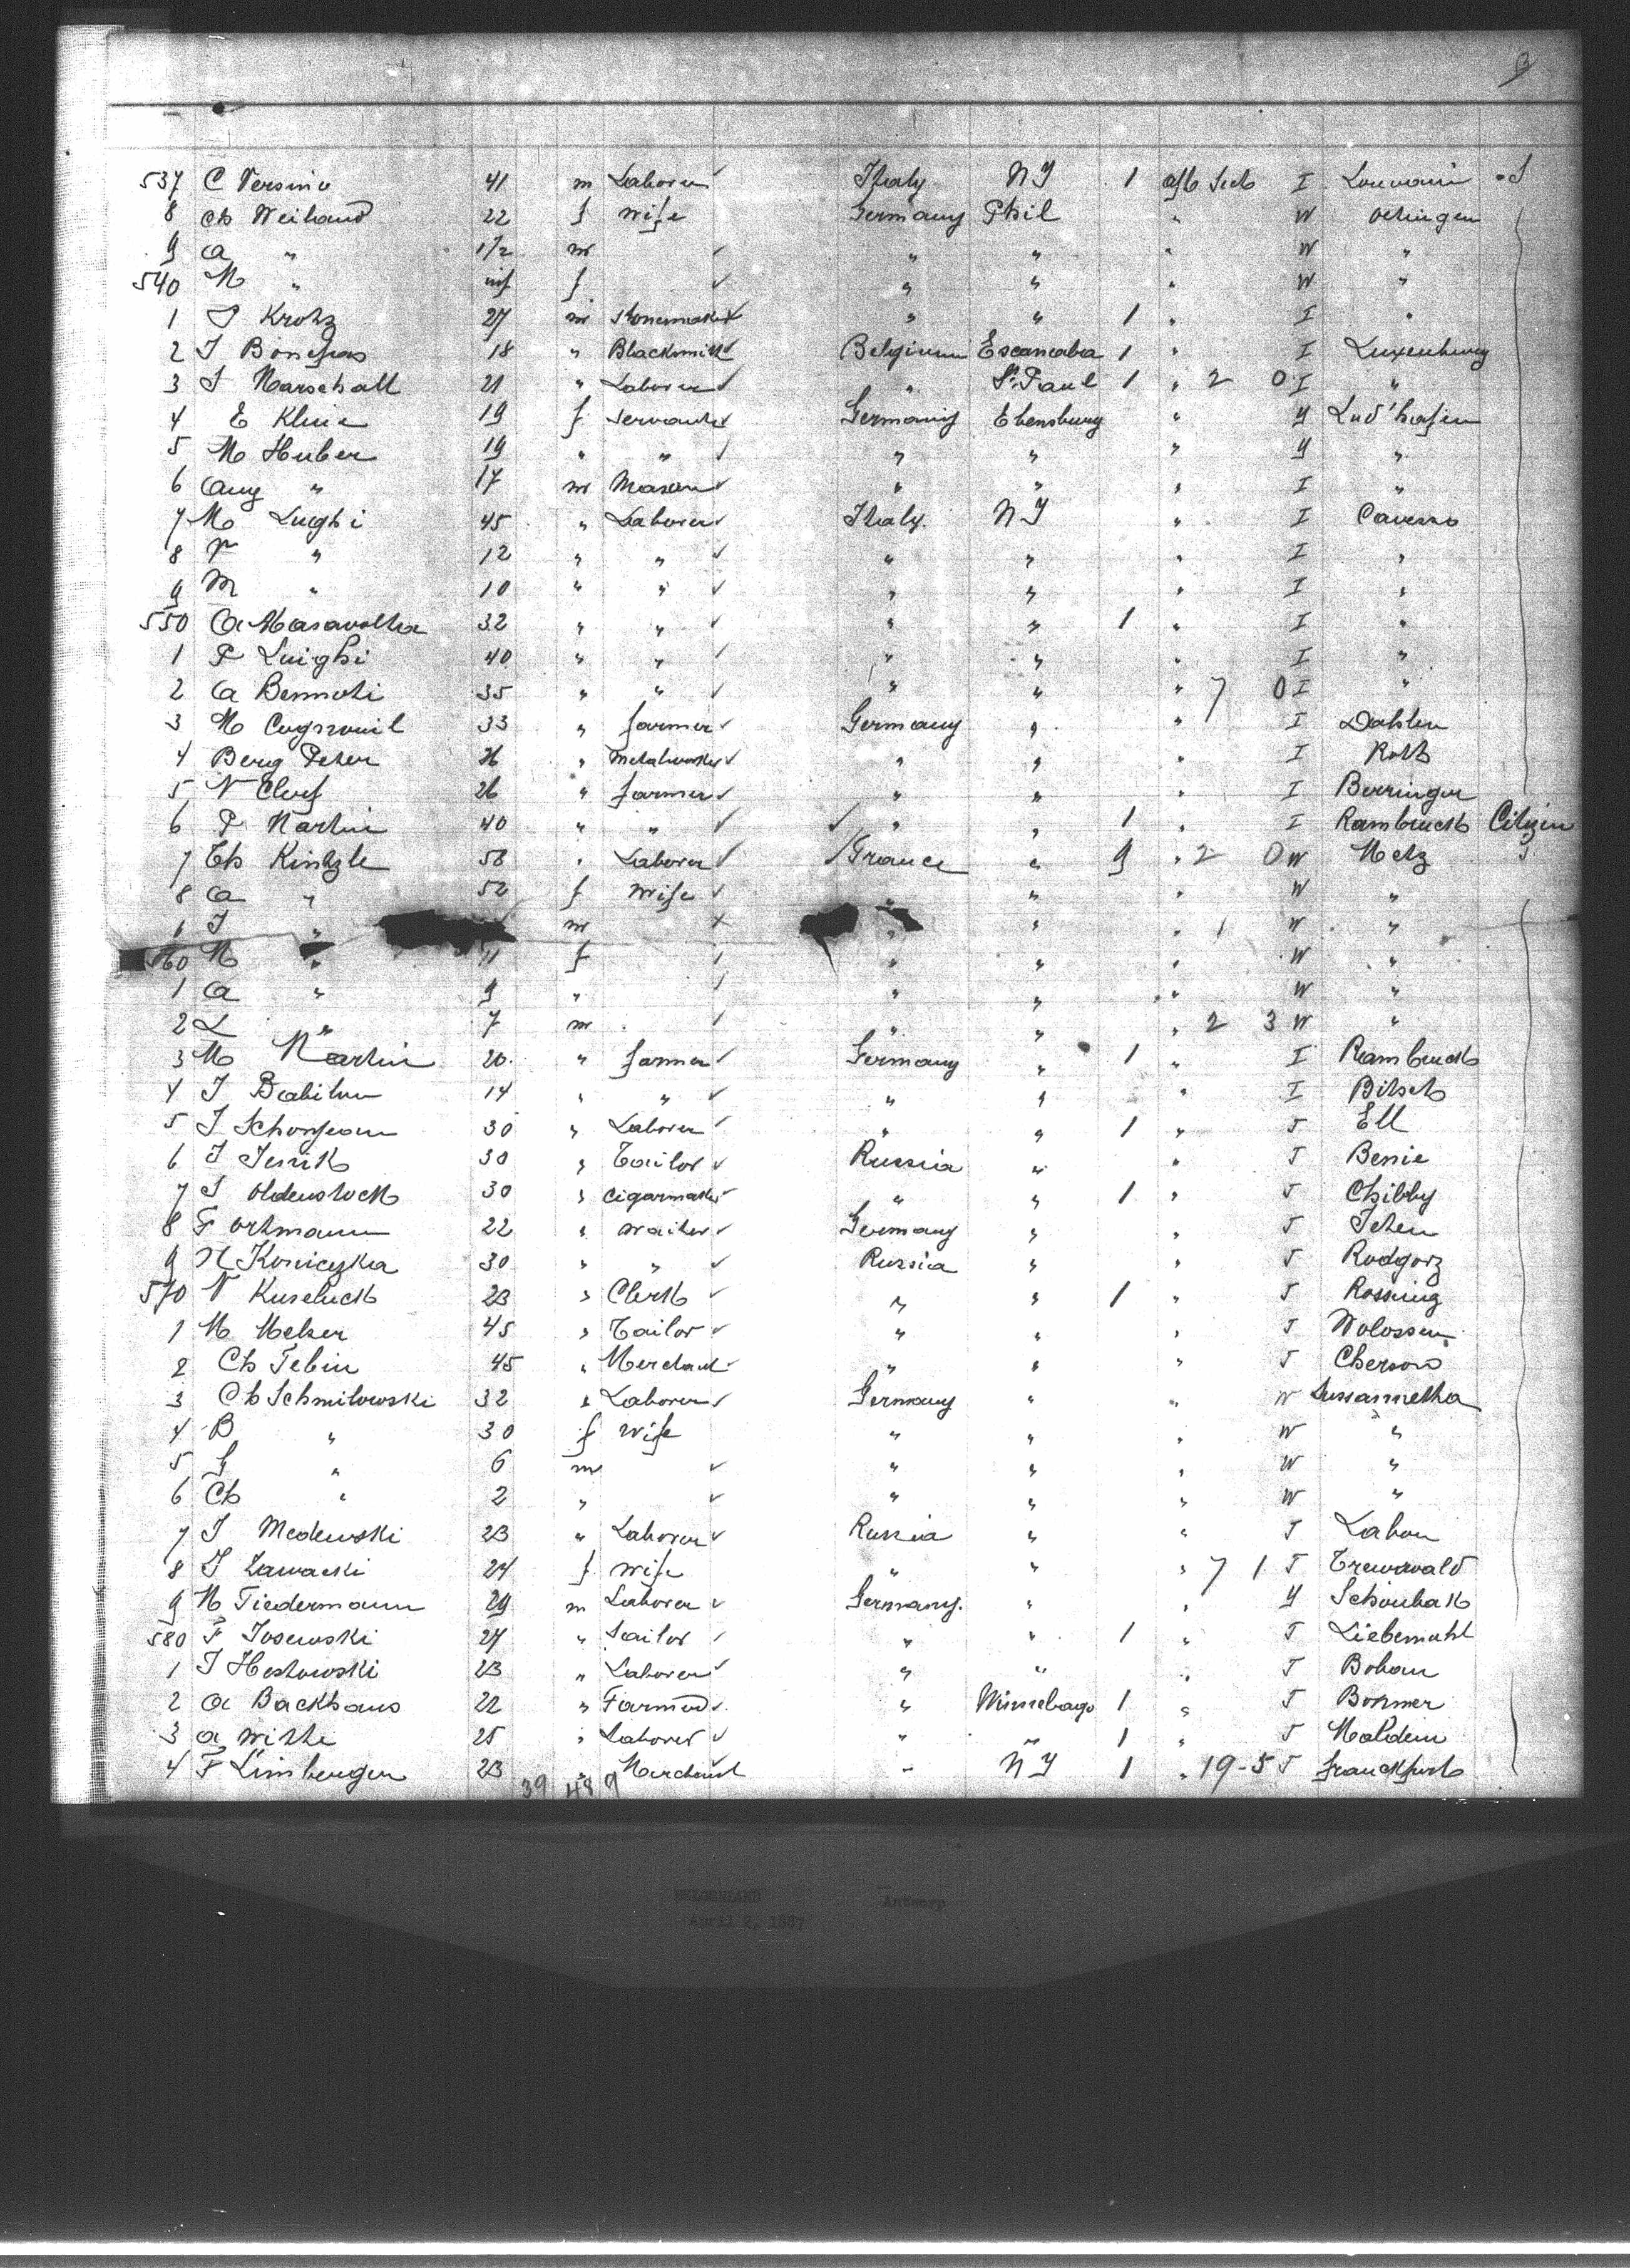 537 C Versino 41 m Laborer Italy NY 1 aft Deck I Louvain
8 Ch Weiland 22 f wife Germany Phil " W Oetingen
9 A " 1 1/2 m " " " W "
540 M " inf f " " " W "
1 P Krohz 27 m " " 1 " I "
2 J Bonefas 18 " Blacksmith Belgium Escanaba 1 " I Luxenburg
3 J Marschall 21 " Laborer " St Paul 1 " 2 0 I "
4 E Kline 19 f servant Germany Ebensburg " Y Lud'hafen
5 M Huber 19 " " " " " Y "
6 Aug " 17 m Mason " " " I "
7 M Lughi 45 " Laborer Italy NY " I
8 P " 12 " " " " " I "
9 M " 10 " " " " " I "
550 A Masavolta 32 " " " " 1 " I "
1 P Luighi 40 " " " " " I "
2 A Bennoti 35 " " " " " 7 0 I "
3 M 33 " farmer Germany " " I Dahlen
4 Berg Peter 26 " Metalworker " " " I Roth
5 N Cloef 26 " farmer " " " I Berringen
6 P Martin 40 " " " " 1 " I Rambruch Citizen
7 Th Kintzle 58 " Laborer France " 9 " 2 0 W Metz
8 A " 52 f wife " " " W "
J " m " " " 1 W "
560 M " 11 f " " " W "
1 A " 9 " " " " W "
2 L " 7 m " " " 2 3 W "
3 M Martin 20 " farmer Germany " 1 " I Rambruch
4 J Babilon 14 " " " " " I Bitsch
5 J Schonjean 30 " Laborer " " 1 " J Ell
6 J 30 " Tailor Russia " " J
7 J Oldenstock 30 " cigarmaker " " 1 " J Chibby
8 F Ortmann 22 " waiter Germany " " J
9 N Konicyka 30 " " Russia " " J Rodgorz
570 N Kuseluck 23 " Clerk " " 1 " J
1 M Melzer 45 " Tailor " " " J Wolossen
2 Ch Tebin 45 " Merchant " " " J Cherson
3 Ch Schmilowski 32 " Laborer Germany " " W
4 B " 30 f wife " " " W "
5 G " 6 m " " " W "
6 Ch " 2 " " " " W "
7 J Medewski 23 " Laborer Russia " " J Labou
8 J Zawacki 24 f wife " " " 7 1 J
9 M Tiedermann 29 m Laborer Germany. " " Y
580 F Josewski 27 " Sailor " " 1 " J Liebemuhl
1 J Hestowski 23 " Laborer " " " J
2 A Backhaus 22 " Farmer " Winnebago 1 " J
3 A Witte 25 " Laborer " " 1 " J Maldem
4 F Limberger 23 " Merchant " NY 1 " 19-5 J Franckfurt
39 48 9
BELGENLAND Antwerp
April 2, 1887